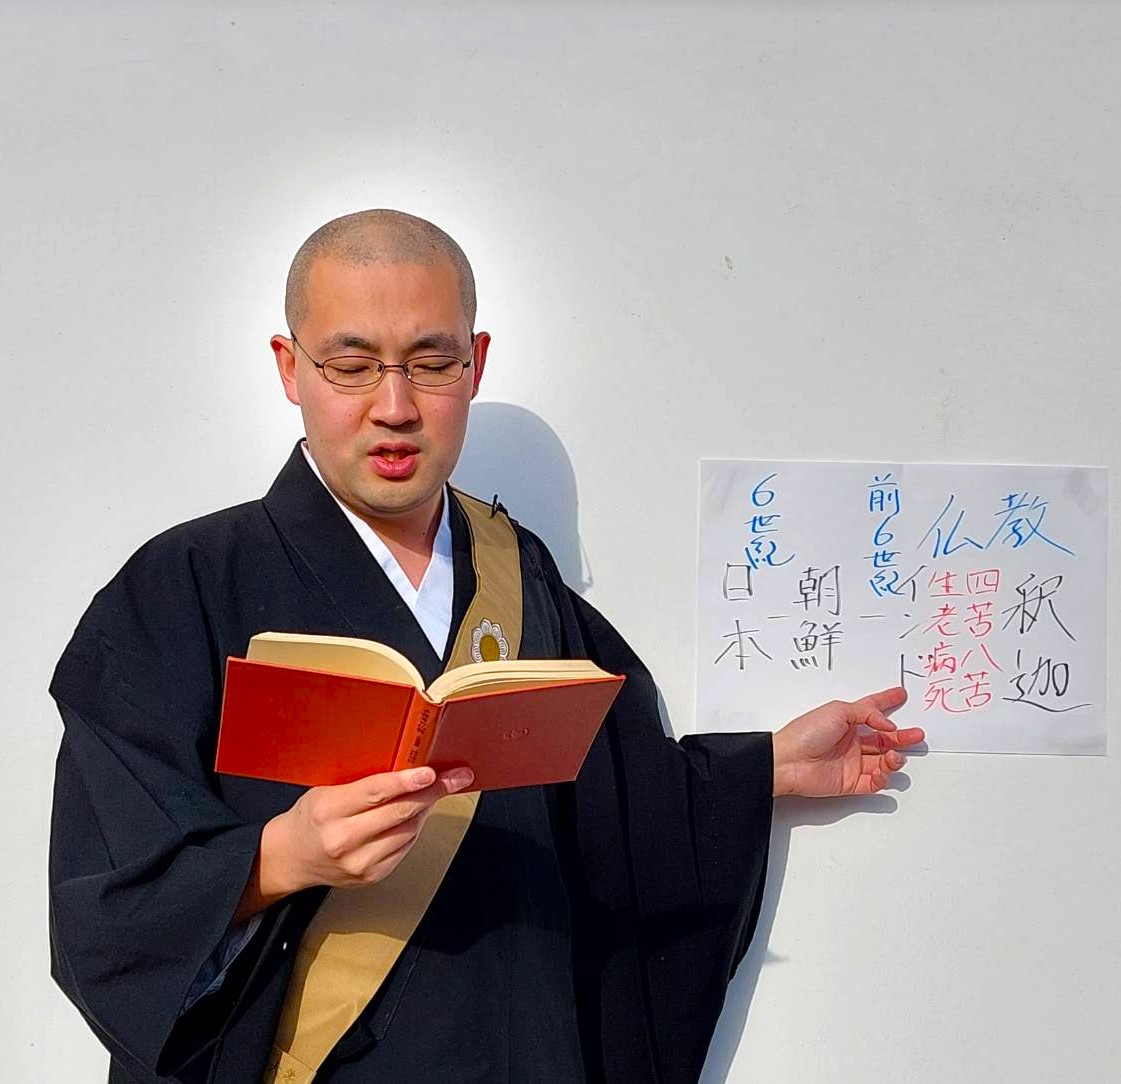 仏教
釈迦
四苦八苦
生老病死
前6世紀
インド
ー
朝鮮
ー
6世紀
日本